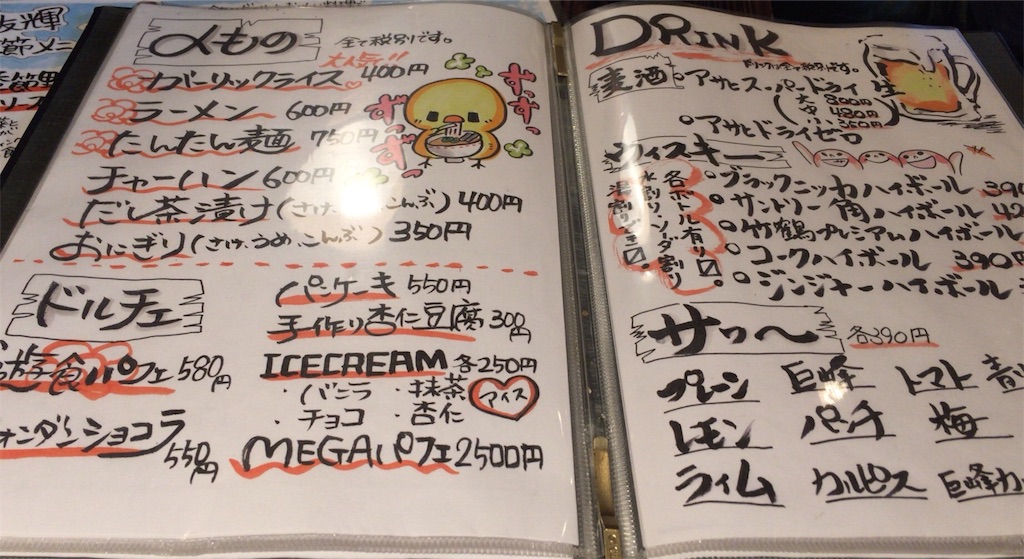 友輝
αもの 全て税別です。
大人気!!
ガーリックライス 400円
ラーメン 600円
たんたん麺 750円
チャーハン 600円
だし茶漬け(さけ、 こんぶ) 400円
おにぎり(さけ、うめ、こんぶ) 350円
ずずっ
ドルチェ
遊食パフェ 580円
フォンダンショコラ 550円
パンケーキ 550円
手作り杏仁豆腐 300円
ICECREAM 各250円
・バニラ ・抹茶
・チョコ ・杏仁
アイス
MEGAパフェ 2500円
DRINK
麦酒
アサヒスーパードライ 生
(大 800円
中 480円
360円)
アサヒドライゼロ
ウィスキー
各ボトル有り
水割り、ソーダ割り
ブラックニッカハイボール 390
サントリー角ハイボール 42
竹鶴プレミアムハイボール
コークハイボール 390円
ジンジャーハイボール
サワ〜 各390円
プレーン 巨峰 トマト 青り
レモン パーチ 梅
ライム カルピス 巨峰カ